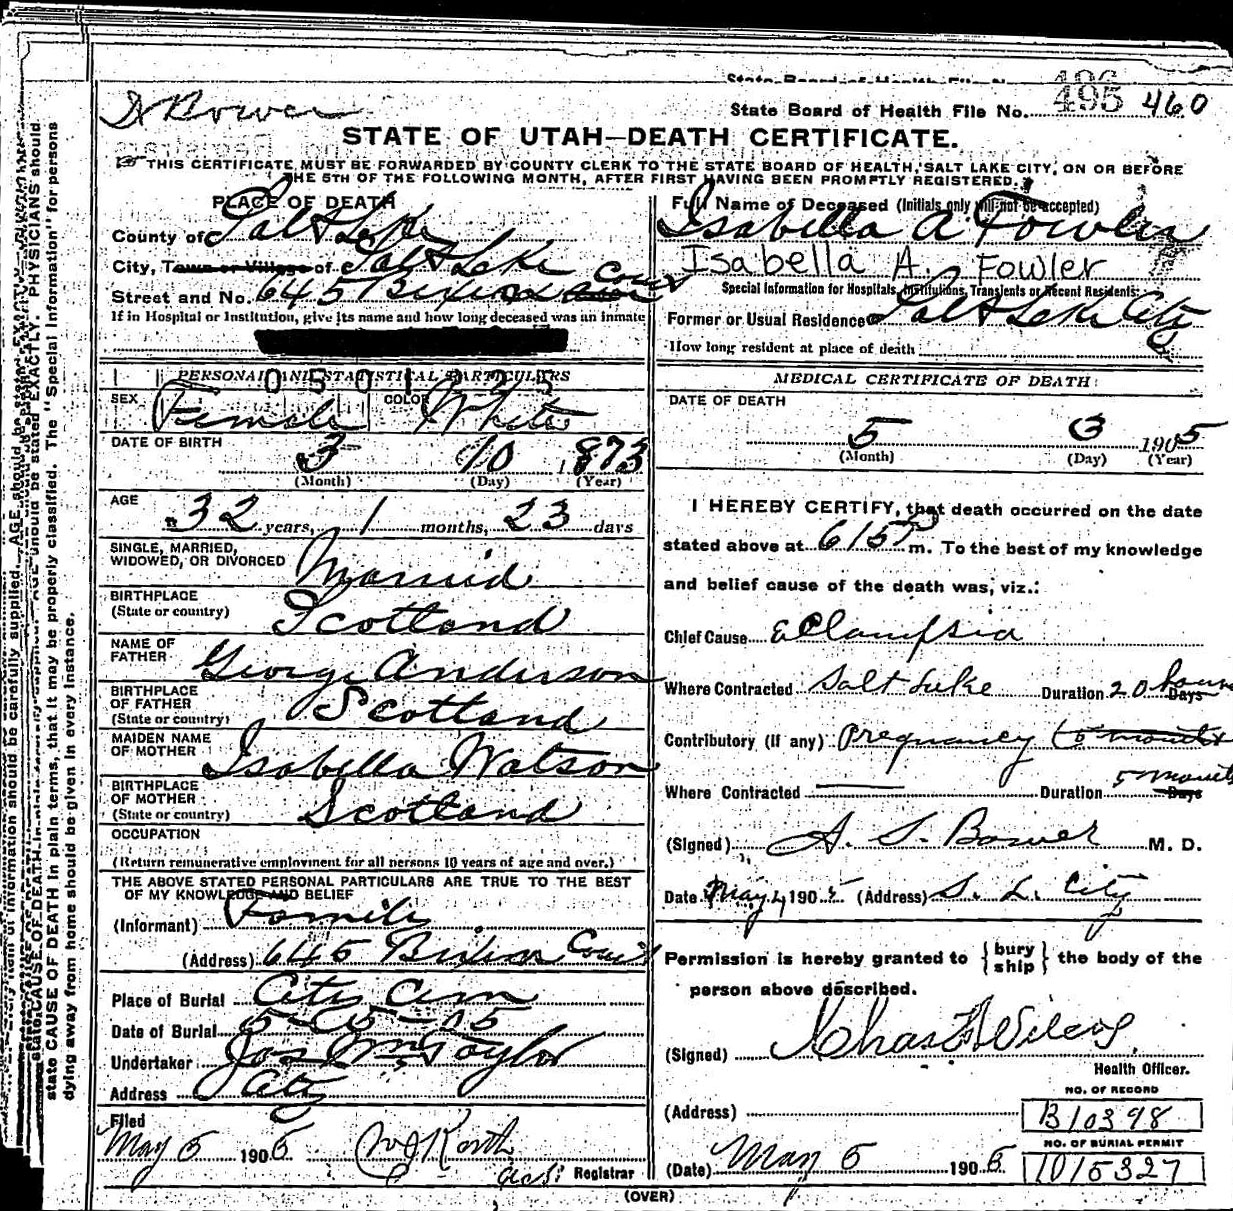 State Board of Health File No. 495 460
Dr Bower
STATE OF UTAH—DEATH CERTIFICATE.
THIS CERTIFICATE MUST BE FORWARDED BY COUNTY CLERK TO THE STATE BOARD OF HEALTH, SALT LAKE CITY, ON OR BEFORE
THE 5TH OF THE FOLLOWING MONTH, AFTER FIRST HAVING BEEN PROMPTLY REGISTERED.
PLACE OF DEATH
County of Salt Lake
City, Town or Village of Salt Lake
Street and No. 645 Court
If in Hospital or Institution, give its name and how long deceased was an inmate
PERSONAL AND STATISTICAL PARTICULARS
0501225
SEX Female COLOR White
DATE OF BIRTH
3 10 1873
(Month) (Day) (Year)
AGE
32 years, 1 months, 23 days
SINGLE, MARRIED,
WIDOWED, OR DIVORCED Married
BIRTHPLACE
(State or country) Scotland
NAME OF
FATHER George Anderson
BIRTHPLACE
OF FATHER
(State or country) Scotland
MAIDEN NAME
OF MOTHER Isabella Watson
BIRTHPLACE
OF MOTHER
(State or country) Scotland
OCCUPATION
(Return remunerative employment for all persons 10 years of age and over.)
THE ABOVE STATED PERSONAL PARTICULARS ARE TRUE TO THE BEST
OF MY KNOWLEDGE AND BELIEF
(Informant) Family
(Address) 645 Court
Place of Burial City Cem
Date of Burial 5-05-05
Undertaker Jos Wm Taylor
Address City
Filed
May 5 1905
Registrar
Full Name of Deceased (Initials only will not be accepted)
Isabella A Fowler
Isabella A. Fowler
Special Information for Hospitals, Institutions, Transients or Recent Residents:
Former or Usual Residence Salt Lake City
How long resident at place of death
MEDICAL CERTIFICATE OF DEATH
DATE OF DEATH
5 3 1905
(Month) (Day) (Year)
I HEREBY CERTIFY, that death occurred on the date
stated above at 615 P m. To the best of my knowledge
and belief cause of the death was, viz.:
Chief Cause eclampsia
Where Contracted Salt Lake Duration 20 hours Days
Contributory (if any) Pregnancy
Where Contracted Duration 5 months Days
(Signed) A. S. Bower M. D.
Date May 4, 1905 (Address) S. L. City
Permission is hereby granted to {bury ship} the body of the
person above described.
(Signed)
Health Officer.
NO. OF RECORD
(Address) B10398
NO. OF BURIAL PERMIT
(Date) May 5 1905 1015327
(OVER)
state CAUSE OF DEATH in plain terms, that it may be properly classified. The "Special Information" for persons
dying away from home should be given in every instance.